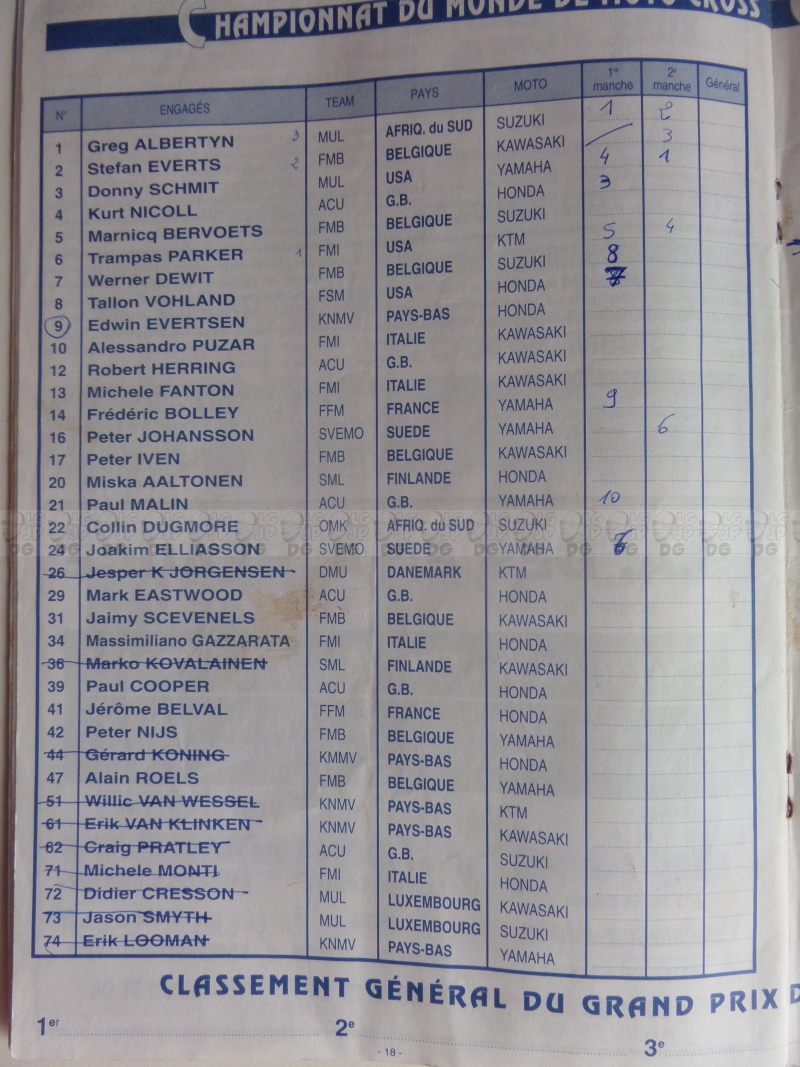 CHAMPIONNAT DU MONDE DE MOTO CROSS
N° ENGAGÉS TEAM PAYS MOTO 1re manche 2e manche Général
1 Greg ALBERTYN 3 MUL AFRIQ. du SUD SUZUKI 1 2
2 Stefan EVERTS 2 FMB BELGIQUE KAWASAKI 3
3 Donny SCHMIT MUL USA YAMAHA 4 1
4 Kurt NICOLL ACU G.B. HONDA 3
5 Marnicq BERVOETS FMB BELGIQUE SUZUKI
6 Trampas PARKER 1 FMI USA KTM 5 4
7 Werner DEWIT FMB BELGIQUE SUZUKI 8
8 Tallon VOHLAND FSM USA HONDA
9 Edwin EVERTSEN KNMV PAYS-BAS HONDA
10 Alessandro PUZAR FMI ITALIE KAWASAKI
12 Robert HERRING ACU G.B. KAWASAKI
13 Michele FANTON FMI ITALIE KAWASAKI
14 Frédéric BOLLEY FFM FRANCE YAMAHA 9
16 Peter JOHANSSON SVEMO SUEDE YAMAHA 6
17 Peter IVEN FMB BELGIQUE KAWASAKI
20 Miska AALTONEN SML FINLANDE HONDA
21 Paul MALIN ACU G.B. YAMAHA 10
22 Collin DUGMORE OMK AFRIQ. du SUD SUZUKI
24 Joakim ELLIASSON SVEMO SUEDE YAMAHA
26 Jesper K JORGENSEN DMU DANEMARK KTM
29 Mark EASTWOOD ACU G.B. HONDA
31 Jaimy SCEVENELS FMB BELGIQUE KAWASAKI
34 Massimiliano GAZZARATA FMI ITALIE HONDA
36 Marko KOVALAINEN SML FINLANDE KAWASAKI
39 Paul COOPER ACU G.B. HONDA
41 Jérôme BELVAL FFM FRANCE HONDA
42 Peter NIJS FMB BELGIQUE YAMAHA
44 Gérard KONING KMMV PAYS-BAS HONDA
47 Alain ROELS FMB BELGIQUE YAMAHA
51 Willic VAN WESSEL KNMV PAYS-BAS KTM
61 Erik VAN KLINKEN KNMV PAYS-BAS KAWASAKI
62 Craig PRATLEY ACU G.B. SUZUKI
71 Michele MONTI FMI ITALIE HONDA
72 Didier CRESSON MUL LUXEMBOURG KAWASAKI
73 Jason SMYTH MUL LUXEMBOURG SUZUKI
74 Erik LOOMAN KNMV PAYS-BAS YAMAHA
CLASSEMENT GÉNÉRAL DU GRAND PRIX D
1er 2e 3e
- 18 -